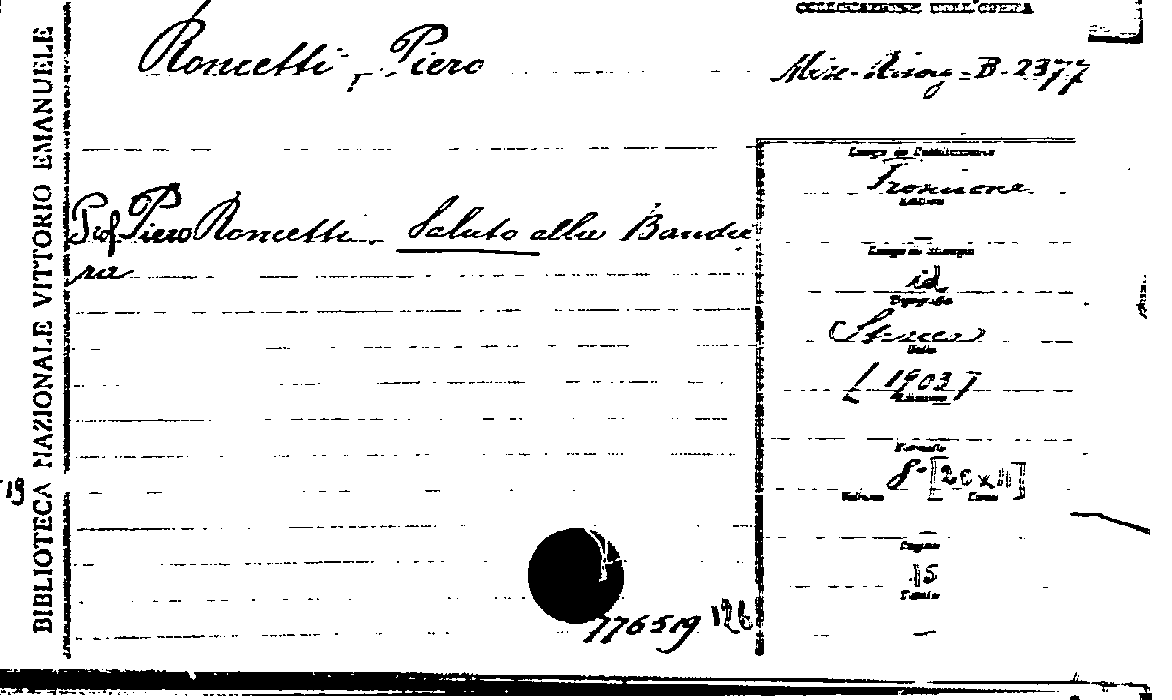 COLLOCAZIONE DELL'OPERA
Roncetti, Piero
Misc. Risorg. B. 2377
BIBLIOTECA NAZIONALE VITTORIO EMANUELE
Prof Piero Roncetti. Saluto alla Bandie
ra
Luogo di Pubblicazione
Frosinone
Editore
—
Luogo di Stampa
id.
Tipografia
Stracca
Data
[1903]
Edizione
—
Formato
8° [20x11]
Volume Tomo
—
Pagine
15
Tavole
—
19
776519 126